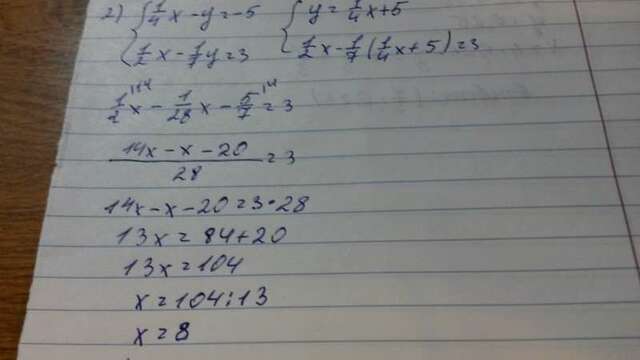 2) { 1/4 x - y = -5 { y = 1/4 x + 5
1/2 x - 1/7 y = 3 1/2 x - 1/7 (1/4 x + 5) = 3
1/2 x - 1/28 x - 5/7 = 3
14x - x - 20 / 28 = 3
14x - x - 20 = 3 · 28
13x = 84 + 20
13x = 104
x = 104 : 13
x = 8